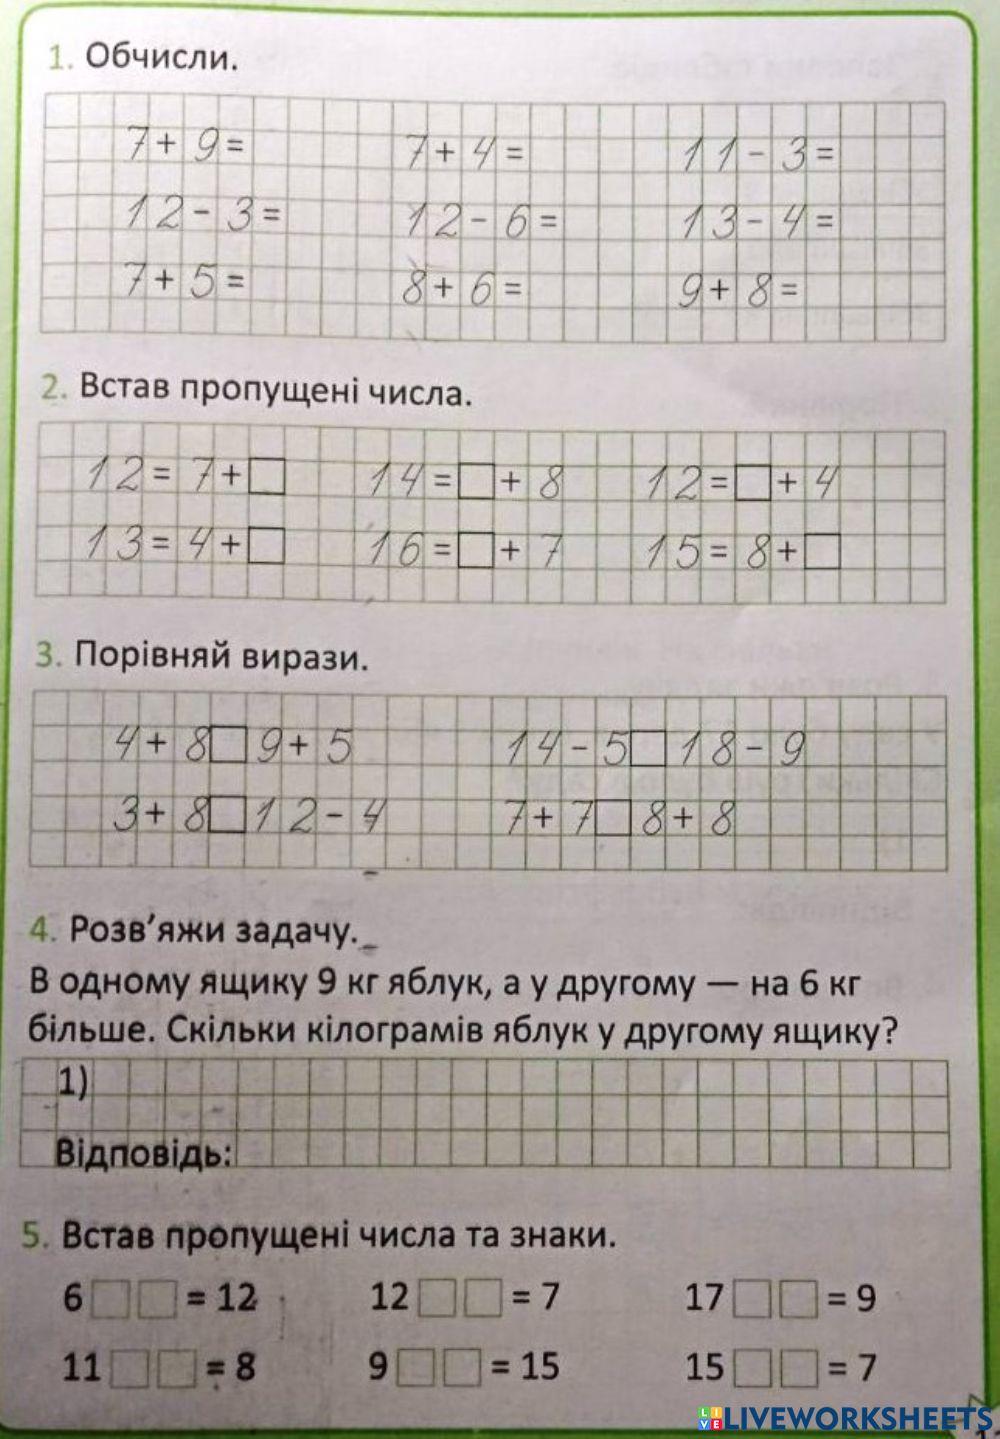 1. Обчисли.
7 + 9 = 7 + 4 = 11 - 3 =
12 - 3 = 12 - 6 = 13 - 4 =
7 + 5 = 8 + 6 = 9 + 8 =
2. Встав пропущені числа.
12 = 7 + □ 14 = □ + 8 12 = □ + 4
13 = 4 + □ 16 = □ + 7 15 = 8 + □
3. Порівняй вирази.
4 + 8 □ 9 + 5 14 - 5 □ 18 - 9
3 + 8 □ 12 - 4 7 + 7 □ 8 + 8
4. Розв’яжи задачу.
В одному ящику 9 кг яблук, а у другому — на 6 кг
більше. Скільки кілограмів яблук у другому ящику?
1)
Відповідь:
5. Встав пропущені числа та знаки.
6 □ □ = 12 12 □ □ = 7 17 □ □ = 9
11 □ □ = 8 9 □ □ = 15 15 □ □ = 7
LIVEWORKSHEETS